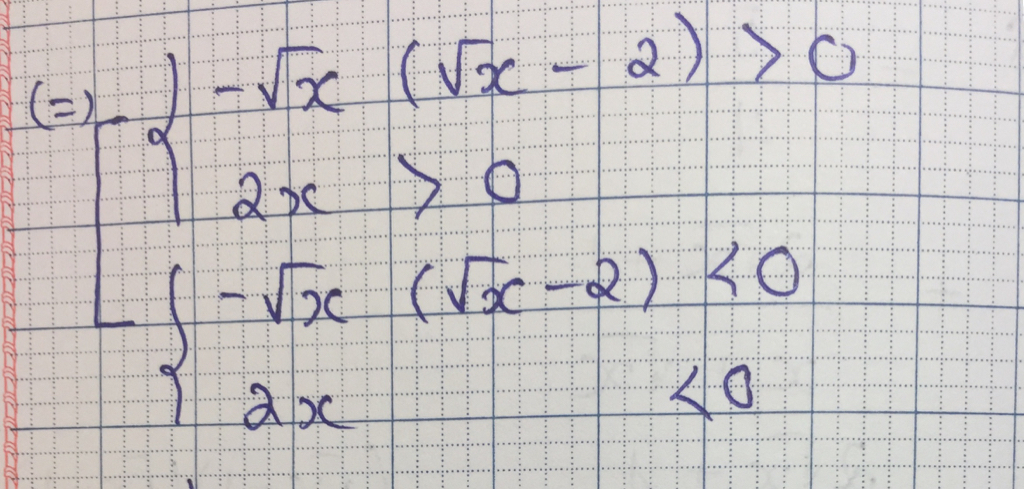 (=) [ { -√x (√x - 2) > 0
2x > 0
{ -√x (√x - 2) < 0
2x < 0